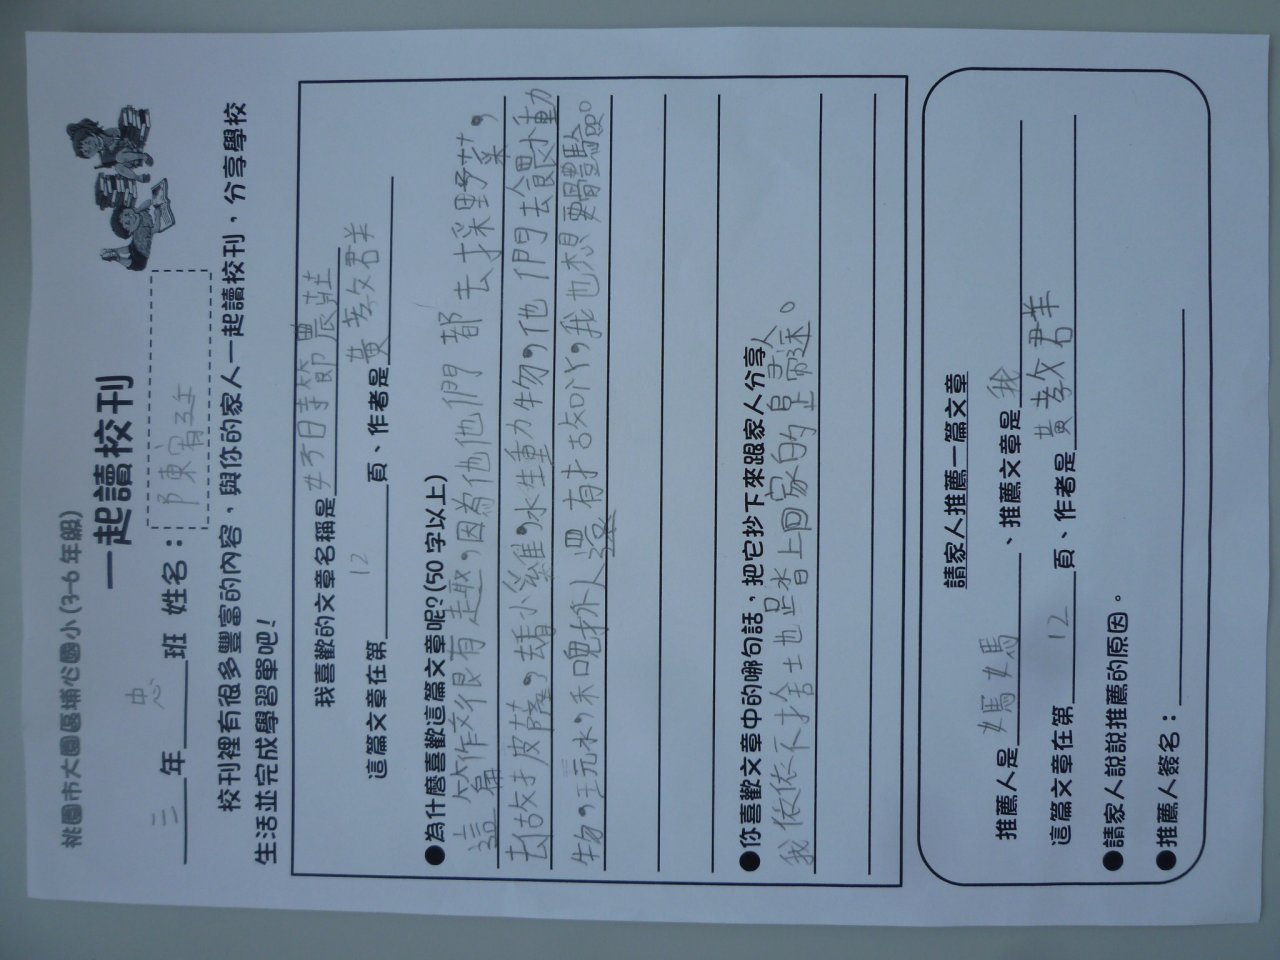 桃園市大園區埔心國小(3-6年級)
一起讀校刊
三年忠班 姓名：陳宥
校刊裡有很多豐富的內容，與你的家人一起讀校刊，分享學校
生活並完成學習單吧！
我喜歡的文章名稱是 日 節農莊
這篇文章在第12頁、作者是黃 群
●為什麼喜歡這篇文章呢?(50字以上)
這篇作文很有趣，因為他他們都去採野菜，
去 披薩，去看小雞，水生動物，他們去餵小動
物，玩水，和 人，還有 ，我也想要體驗。
●你喜歡文章中的哪句話，把它抄下來跟家人分享
我依依不捨 也踏上回家的 。
請家人推薦一篇文章
推薦人是媽媽、推薦文章是我
這篇文章在第12頁、作者是黃 群
●請家人說說推薦的原因。
●推薦人簽名：